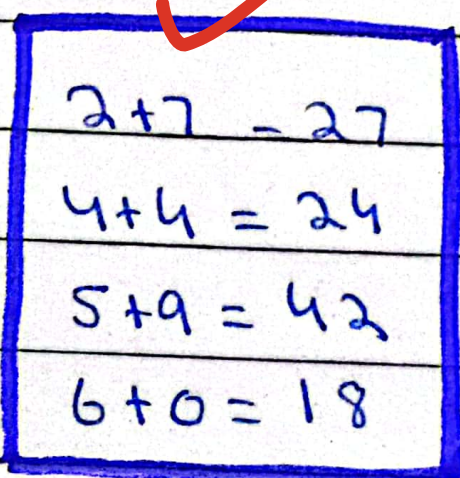 2+7 = 27
4+4 = 24
5+9 = 42
6+0 = 18